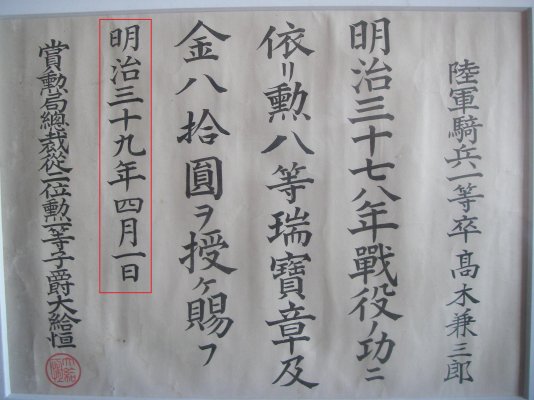 陸軍騎兵一等卒髙木兼三郎
明治三十七八年戰役ノ功ニ
依リ勲八等瑞寶章及
金八拾圓ヲ授ケ賜フ
明治三十九年四月一日
賞勲局總裁從二位勲一等子爵大給恒